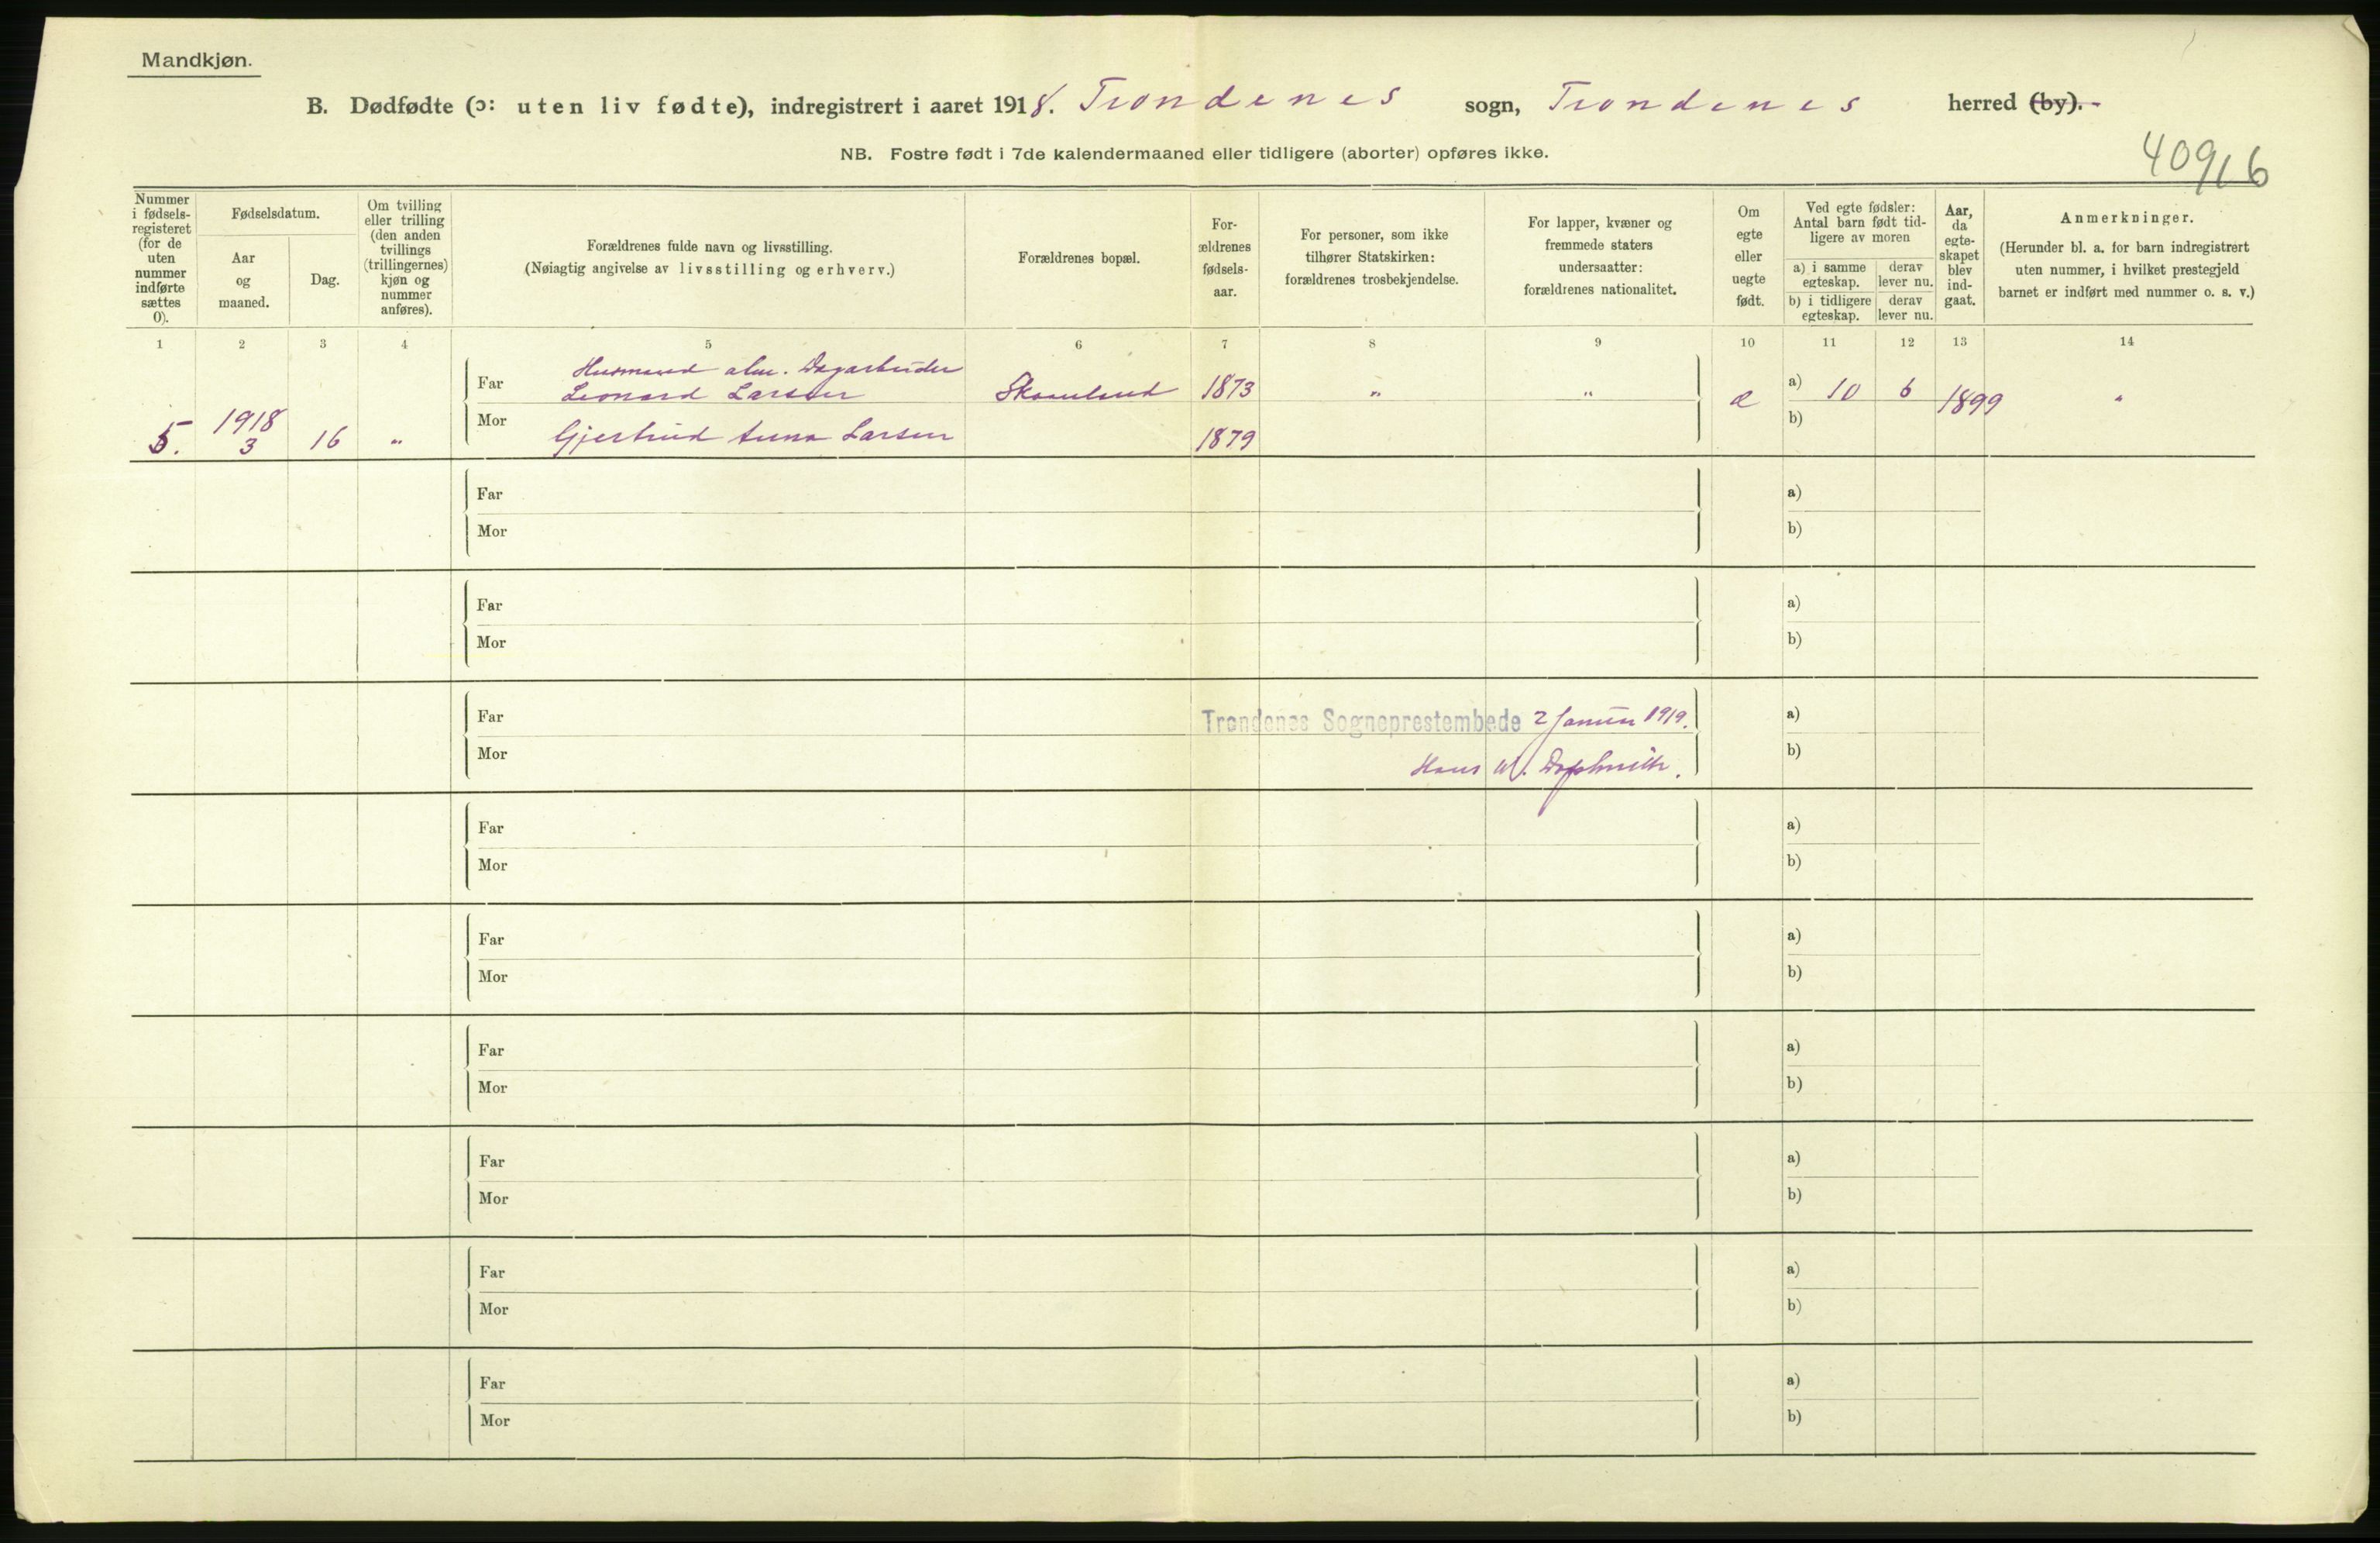 Mandkjøn.
B. Dødfødte (ɔ: uten liv fødte), indregistrert i aaret 1918. Trondenes sogn, Trondenes herred (by).
NB. Fostre født i 7de kalendermaaned eller tidligere (aborter) opføres ikke.
409/16
Nummer
i fødsels-
registeret
(for de
uten
nummer
indførte
sættes
0).
Fødselsdatum.
Aar
og
maaned.
Dag.
Om tvilling
eller trilling
(den anden
tvillings
(trillingernes)
kjøn og
nummer
anføres).
Forældrenes fulde navn og livsstilling.
(Nøiagtig angivelse av livsstilling og erhverv.)
Forældrenes bopæl.
For-
ældrenes
fødsels-
aar.
For personer, som ikke
tilhører Statskirken:
forældrenes trosbekjendelse.
For lapper, kvæner og
fremmede staters
undersaatter:
forældrenes nationalitet.
Om
egte
eller
uegte
født.
Ved egte fødsler:
Antal barn født tid-
ligere av moren
a) i samme
egteskap.
derav
lever nu.
b) i tidligere
egteskap.
derav
lever nu.
Aar,
da
egte-
skapet
blev
ind-
gaat.
Anmerkninger.
(Herunder bl. a. for barn indregistrert
uten nummer, i hvilket prestegjeld
barnet er indført med nummer o. s. v.)
1 2 3 4 5 6 7 8 9 10 11 12 13 14
Husmand alm. Dagarbeider
Far Leonard Larsen 1873 " " e a) 10 6 1899 "
5. 1918 3 16 " Mor Gjertrud Anna Larsen 1879 b)
Far a)
Mor b)
Far a)
Mor b)
Far Trondenes Sogneprestembede 2 Januar 1919. a)
Mor Hans b)
Far a)
Mor b)
Far a)
Mor b)
Far a)
Mor b)
Far a)
Mor b)
Far a)
Mor b)
Far a)
Mor b)